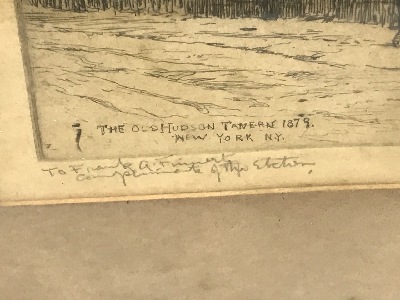 THE OLD HUDSON TAVERN 1879.
NEW YORK NY.
To Frank A.
Compliments of the Etcher.